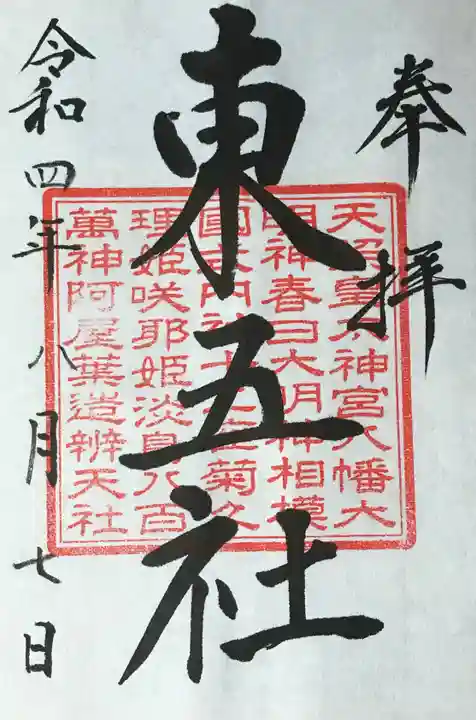 奉拝
東五社
令和四年八月七日
天照皇大神宮八幡大
明神春日大明神相模
國式内社十三座菊久
理姫咲耶姫淡島八百
萬神阿屋葉造辨天社